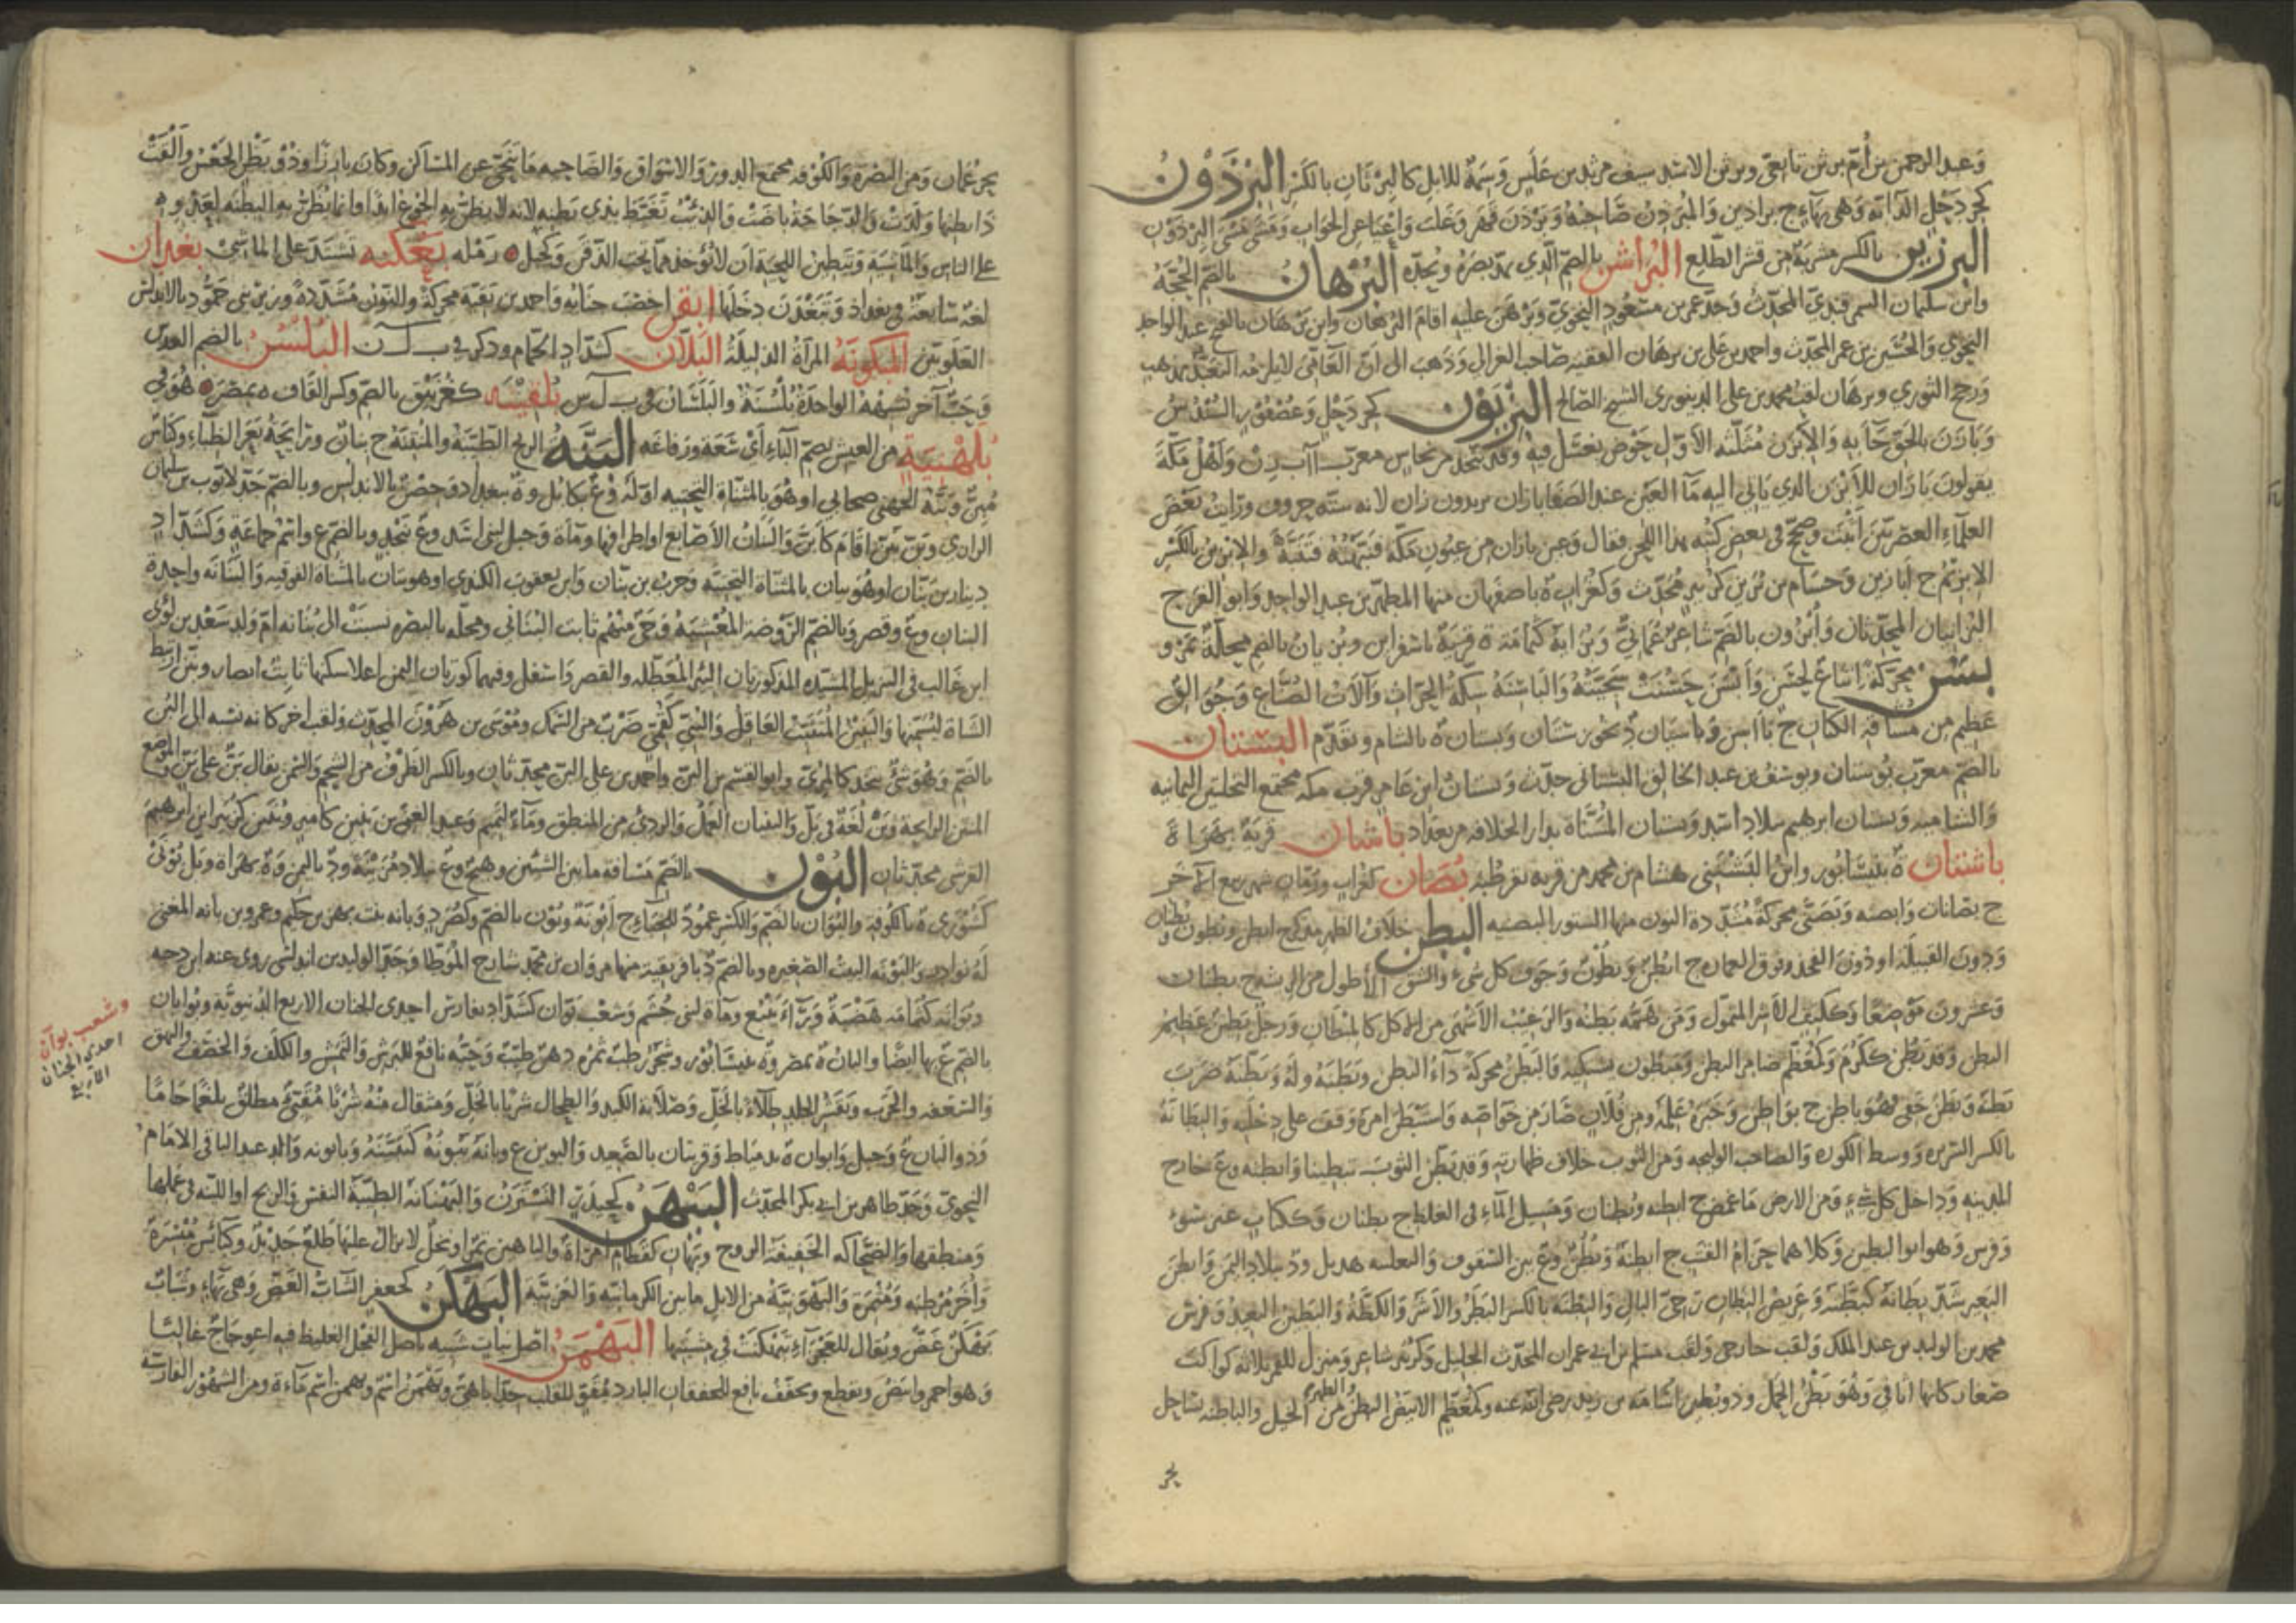 وعبد الرحمن بن أم برثن تابعي وبرثن الاسد سيف مرثد بن علس وسمة للابل كالبرثان بالكسر البرذون
كجردحل الدابة وهي بهاء ج براذين والمبرذن صاحبه وبرذن قهر وغلب واعيا عن الجواب ومشى مشى البرذون
البرزين بالكسر مشربة من قشر الطلع البراشن بالضم الذي يمد بصره ويحده البرهان بالضم الحجة
وابن سليمان السمرقندي المحدث وجد عمر بن مسعود النحوي وبرهن عليه اقام البرهان وابن برهان بالفتح عبد الواحد
النحوي والحسين بن عمر المحدث واحمد بن علي بن برهان الفقيه صاحب الغزالي وذهب الى ان العامي لا يلزمه التقيد بمذهب
ورجح النووي وبرهان لقب محمد بن علي الدينوري الشيخ الصالح البزيون كجردحل وعصفور السندس
وبازن بالحق جا به والابزن مثلثة الاول حوض يغتسل فيه وقد يتخذ من نحاس معرب آب زن واهل مكة
يقولون بازان للابزن الذي ياتي اليه ما العين عند الصفا يازان يريدون زان لانه شبه حروف ورايت بعض
العلماء العصريين اثبت وصحح في بعض كتبه هذا اللحن فقال وعين بازان من عيون مكة فنبهته فتنبه والابزين بالكسر
الابزيم ج ابازين وحسام بن بزين كزبير محدث وكغراب ة باصفهان منها المطهر بن عبد الواحد وابو الفرج
البزانيان المحدثان وأبزون بالضم شاعر عماني وبزانة كثمامة ة قرية باسفراين وبزيان بالضم محلة بمرو
بسن محركة اتباع لحسن وأبسن حسنت سحنته والباسنة سكة الحراث وآلات الصناع وجوالق
عظيم من مشاقة الكتان ج بآسن وباسيان د بخوزستان وبيسان ة بالشام وتقدم البستان
بالضم معرب بوستان ويوسف بن عبد الخالق البستاني حدث وبستان ابن عامر قرب مكة مجتمع النخلتين اليمانية
والشامية وبستان ابرهيم ببلاد اسد وبستان المسناة بدار الخلافة من بغداد باشان قرية بهراة
باشتان ة بنيسابور وابن البشتني هشام بن محمد من قرية بقرطبة بصان كغراب ورمان شهر ربيع الآخر
ج بصانات وابصنة وبصنى محركة مشددة النون منها الستور البصنية البطن خلاف الظهر مذكر ج ابطن وبطون وبطنان
ودون القبيلة او دون الفخذ وفوق العمارة ج ابطن وبطون وجوف كل شيء والشق الأطول من الريشة ج بطنان
وعشرون موضعا وككتف الأشر المتمول ومن همه بطنه والرغيب لا تنتهي نفسه من الاكل كالمبطان ورجل بطين عظيم
البطن وقد بطن ككرم وكمعظم ضامر البطن ومبطون يشتكيه والبطن محركة داء البطن وبطنه وله وبطنه ضرب
بطنه وبطن خفي فهو باطن ج بواطن وخبره علمه ومن فلان صار من خواصه واستبطن امره وقف على دخلته والبطانة
بالكسر السريرة ووسط الكورة والصاحب الوليجة ومن الثوب خلاف ظهارته وقد بطن الثوب تبطينا وابطنه وع خارج
المدينة وداخل كل شيء ومن الارض ما غمض ج ابطنة وبطنان ومسيل الماء في الغلظ ج بطنان وككتاب
وفرس وهو ابو البطين وكلاهما حزام القتب ج ابطنة وبطن وع بين الشقوق والثعلبية هذيل ود ببلاد اليمن وابطن
البعير شد بطانه كبطنه وعريض البطان رخي البال والبطنة بالكسر البطر والاشر والكظة والبطين البعيد وفرس
محمد بن الوليد بن عبد الملك ولقب خارجي ولقب مسلم بن ابي عمران المحدث الجليل وكزبير شاعر ومنزل للقمر ثلاثة كواكب
صغار كانها اثافي وهو بطن الحمل وذو بطين اسامة بن زيد رضي الله عنه وكمعظم الابيض البطن والظهر من الخيل والباطنة ساحل
بحر
بحر عمان ومن البصرة والكوفة مجتمع الدور والاسواق والضاحية ما تنحى عن المساكن وكان بارزا وذو بطن الجعس وألقت
ذا بطنها ولدت والدجاجة باضت والذئب تغتبط بذي بطنه لانه لا يظن به الجوع ابدا وانما يظن به البطنة لعدوه
على الناس والماشية وتبطين اللحية ان لا يؤخذ مما تحت الذقن والحنك رملة بعكنة تشتد على الماشي بغدان
لغة شائعة في بغداد وتبغدن دخلها ابقن اخصب جنابه واحمد بن بقنة محركة والنون مشددة وزير بني حمود بالاندلس
العلويين المبكونة المرأة الذليلة البلان كشداد الحمام وذكر في ب ل ل البلسن بالضم العدس
وحب آخر يشبهه الواحدة بلسنة والبلسان في ب ل س بلقينة كغرنيق بالضم وكسر القاف ة بمصر هو في
بلهنية من العيش بضم الباء أي سعة ورفاغة البنة الريح الطيبة والمنتنة ج بنان ورائحة بعر الظباء وكناس
مبن وبنة الجهني صحابي او هو بالمثناة التحتية اوله وع بكابل وة ببغداد وحصن بالاندلس وبالضم جد لايوب بن سليمان
الرازي وبن يبن اقام كأبن والبنان الأصابع او اطرافها وماة وجبل لبني اسد وع بنجد وبالضم ع واسم جماعة وكشداد
دينار بن بنان او هو بيان بالمثناة التحتية وحرب بن بنان وابن يعقوب الكندي او هو بتان بالمثناة الفوقية والبنانة واحدة
البنان وع وقصر وبالضم الروضة المعشبة وحي منهم ثابت البناني ومحلة بالبصرة نسبت الى بنانة ام ولد سعد بن لؤي
ابن غالب في التنزيل المشيدة المذكوران البئر المعطلة والقصر واسفل وفيهما كورتان اليمن اعلاه سكنها ثابت انصار وبنن ارتبط
الشاة ليسمنها والبنين المتثبت العاقل والبني كقمي ضرب من السمك وموسى بن هرون المحدث ولقب اخر كانه نسبة الى البن
بالضم وهو شيء يتخذ كالمري وابو القسم بن البن واحمد بن علي البن محدثان وبالكسر الطرق من الشحم والسمن يقال بن على بن والموضع
المنتن الرائحة وبن لغة في بل والبنبان العمل والرديء من المنطق وماء لتميم وعبد الغني بن بنين كامير وبنين كزبير ابن ابرهيم
القرشي محدثان البون بالضم مسافة ما بين الشيئين ويفتح وع ببلاد مزينة ود باليمن وة بهراة وتل بونى
كشورى ة بالكوفة والبوان بالضم والكسر عمود للخباء ج أبونة وبون بالضم وكصرد وبانة بنت بهز بن حكيم وعمرو بن بانة المغني
له نوادر والبونة البنت الصغيرة وبالضم د بافريقية منها مروان بن محمد شارح الموطا وجد الوليد بن اندلسي روى عنه ابن دحية
وبوانة كثمامة هضبة وراء ينبع وماة لبني جشم وشعب بوان كشداد بفارس احدى الجنان الاربع الدنيوية وبوانان
بالضم ع بها ايضا والبان ة بمصر وة بنيسابور وشجر رطب ثمره دهن طيب وحبه نافع للبرش والنمش والكلف والحصف والبهق
والسعفة والجرب وتقشر الجلد طلاء بالخل وصلابة الكبد والطحال شربا بالخل ومثقال منه شربا مقيئ مطلق بلغما خاما
وذو البان ع وجبل وابوان ة بدمياط وقريتان بالصعيد والبوين ع وبانه يبونه كيبينه وبابونة والد عبد الباقي الامام
النحوي وجد طاهر بن ابي بكر المحدث البهمن كحيدر النسترن والبهنانة الطيبة النفس والريح او اللينة في عملها
ومنطقها والضحاكة الخفيفة الروح وبهان كقطام امرأة والباهين تمر او نخل لا يزال عليها طلع جديد وكبائس مبسرة
وأخر مرطبة ومثمرة والبهونية من الابل ما بين الكرمانية والعربية البهكن كجعفر الشاب الغض وهي بهاء وشباب
بهكن غض ويقال للعجزاء تبهكنت في مشيها البهمن اصل نبات شبيه باصل الفجل الغليظ فيه اعوجاج غالبا
وهو احمر وابيض ويقطع ويجفف نافع للخفقان البارد مقو للقلب جدا باهي وبهمن اسم وبهمن اسم ماءة ومن الشهور الفارسية
وشعب بوآن
احدى الجنان
الاربع